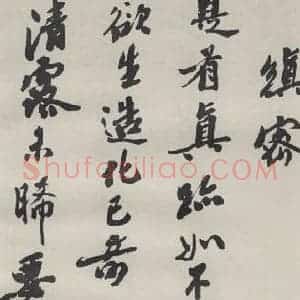 縝密
是有真跡如不
欲生造化已奇
清露未晞要
Shufaziliao.com